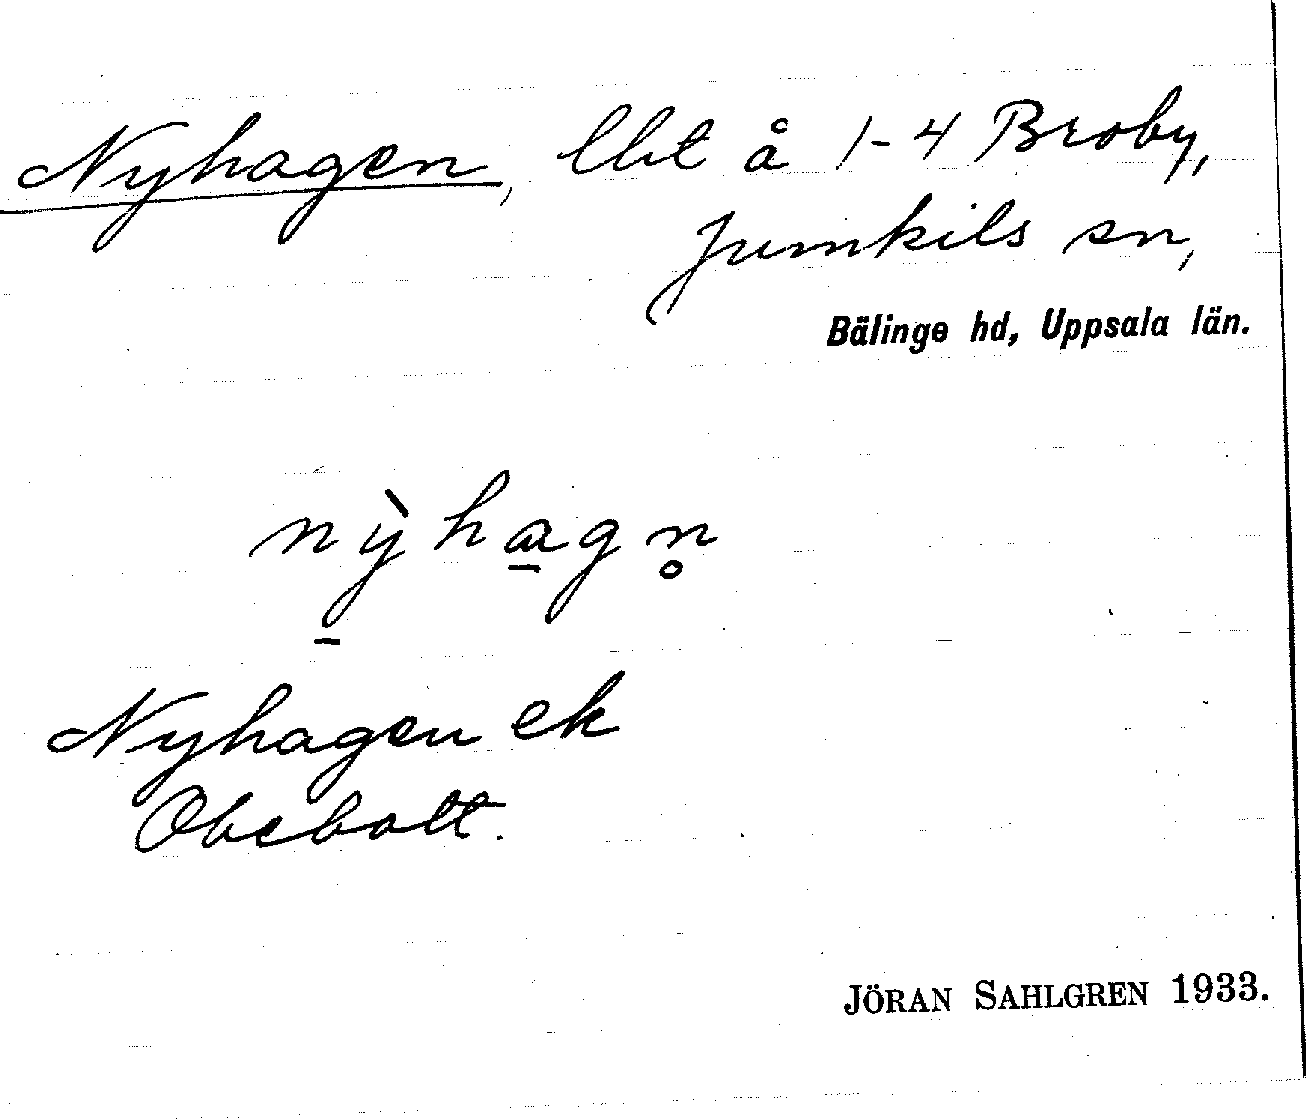 Nyhagen, lht å 1-4 Broby,
Jumkils sn,
Bälinge hd, Uppsala län.
nỳ̠ha̠gn̥
Nyhagen ek
Obebott.
JÖRAN SAHLGREN 1933.